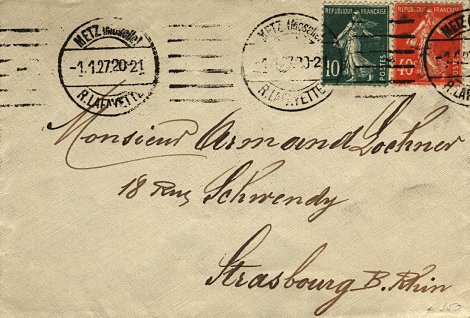 METZ (Moselle)
-1.1.27.20-21
R. LAFAYETTE
METZ (Moselle)
-1.1.27.20-21
R. LAFAYETTE
REPUBLIQUE FRANÇAISE
10
POSTES
REPUBLIQUE FRANÇAISE
40c
Monsieur Armand Lochner
18 Rue Schwendy
Strasbourg B. Rhin